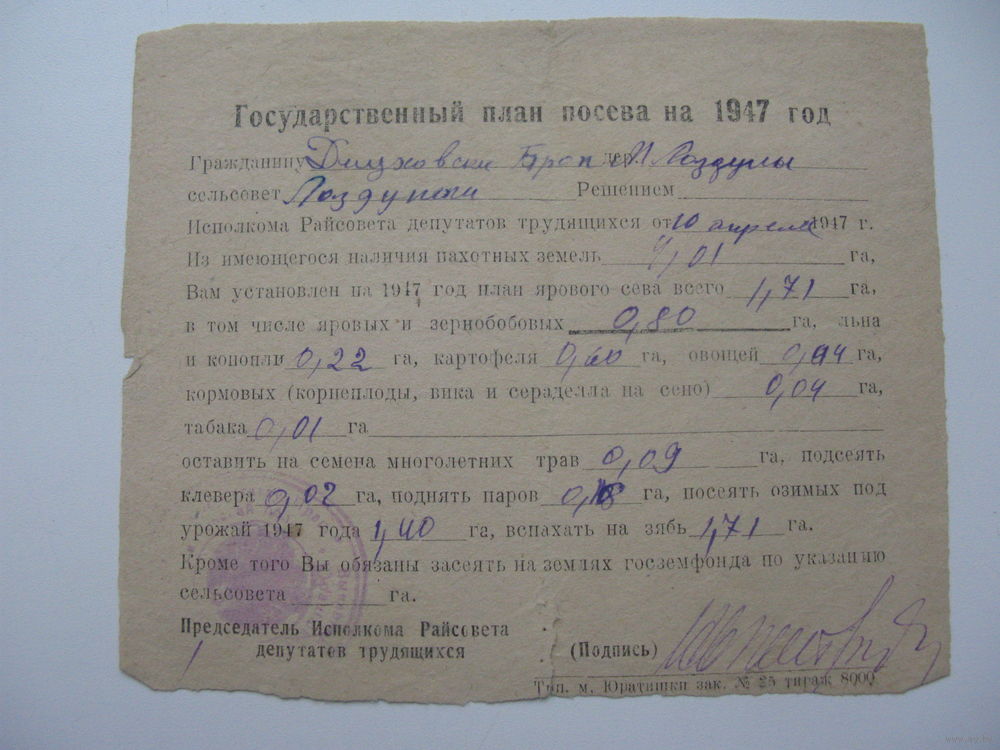 Государственный план посева на 1947 год
Гражданину дер. Лоздуны
сельсовет Решением
Исполкома Райсовета депутатов трудящихся от 10 апреля 1947 г.
Из имеющегося наличия пахотных земель 4,01 га,
Вам установлен на 1947 год план ярового сева всего 1,71 га,
в том числе яровых и зернобобовых 0,80 га, льна
и конопли 0,22 га, картофеля га, овощей 0,04 га,
кормовых (корнеплоды, вика и сераделла на сено) 0,04 га,
табака 0,01 га
оставить на семена многолетних трав 0,09 га, подсеять
клевера 0,02 га, поднять паров га, посеять озимых под
урожай 1947 года 1,40 га, вспахать на зябь 1,71 га.
Кроме того Вы обязаны засеять на землях госземфонда по указанию
сельсовета га.
Председатель Исполкома Райсовета
депутатов трудящихся (Подпись)
Тип. м. Юратишки зак. № 25 тираж 8000